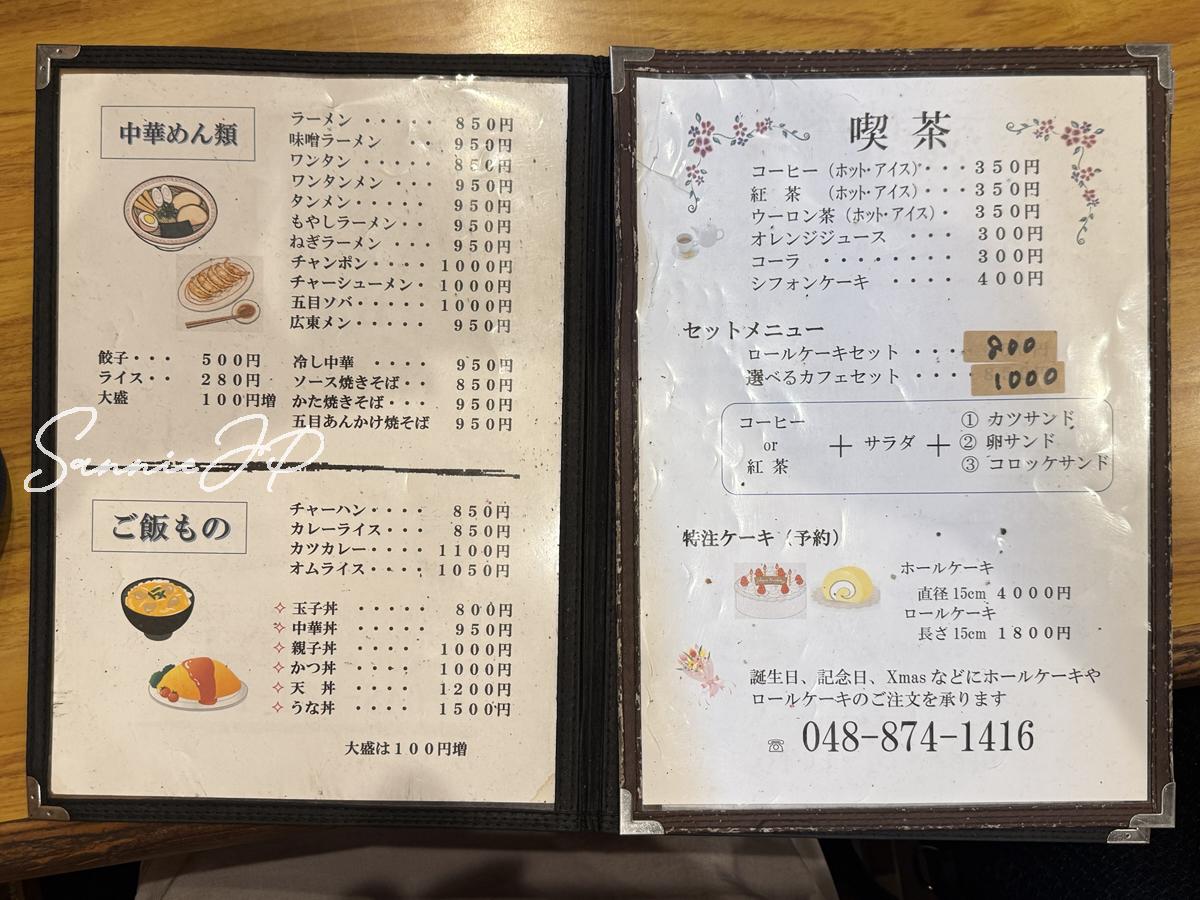 中華めん類
ラーメン ・・・・・ 850円
味噌ラーメン ・・ 950円
ワンタン ・・・・・ 850円
ワンタンメン ・・・ 950円
タンメン ・・・・・ 950円
もやしラーメン・・ 950円
ねぎラーメン ・・・ 950円
チャンポン・・・・ 1000円
チャーシューメン・ 1000円
五目ソバ・・・・・ 1000円
広東メン・・・・・ 950円
餃子・・・ 500円
ライス・・ 280円
大盛 100円増
冷し中華 ・・・・ 950円
ソース焼きそば・・ 850円
かた焼きそば・・・ 950円
五目あんかけ焼そば 950円
SannieJP
ご飯もの
チャーハン・・・・ 850円
カレーライス・・・ 850円
カツカレー・・・・ 1100円
オムライス・・・・ 1050円
✧ 玉子丼 ・・・・・ 800円
✧ 中華丼 ・・・・・ 950円
✧ 親子丼 ・・・・ 1000円
✧ かつ丼 ・・・・ 1000円
✧ 天 丼 ・・・・ 1200円
✧ うな丼 ・・・・ 1500円
大盛は100円増
喫茶
コーヒー(ホット・アイス)・・・350円
紅 茶 (ホット・アイス)・・・350円
ウーロン茶(ホット・アイス)・ 350円
オレンジジュース ・・・ 300円
コーラ ・・・・・・・・ 300円
シフォンケーキ ・・・・ 400円
セットメニュー
ロールケーキセット ・・・ 900
選べるカフェセット ・・・・ 1000
コーヒー
or
紅 茶
+ サラダ +
① カツサンド
② 卵サンド
③ コロッケサンド
特注ケーキ(予約)
ホールケーキ
直径15cm 4000円
ロールケーキ
長さ15cm 1800円
誕生日、記念日、Xmasなどにホールケーキや
ロールケーキのご注文を承ります
☏ 048-874-1416